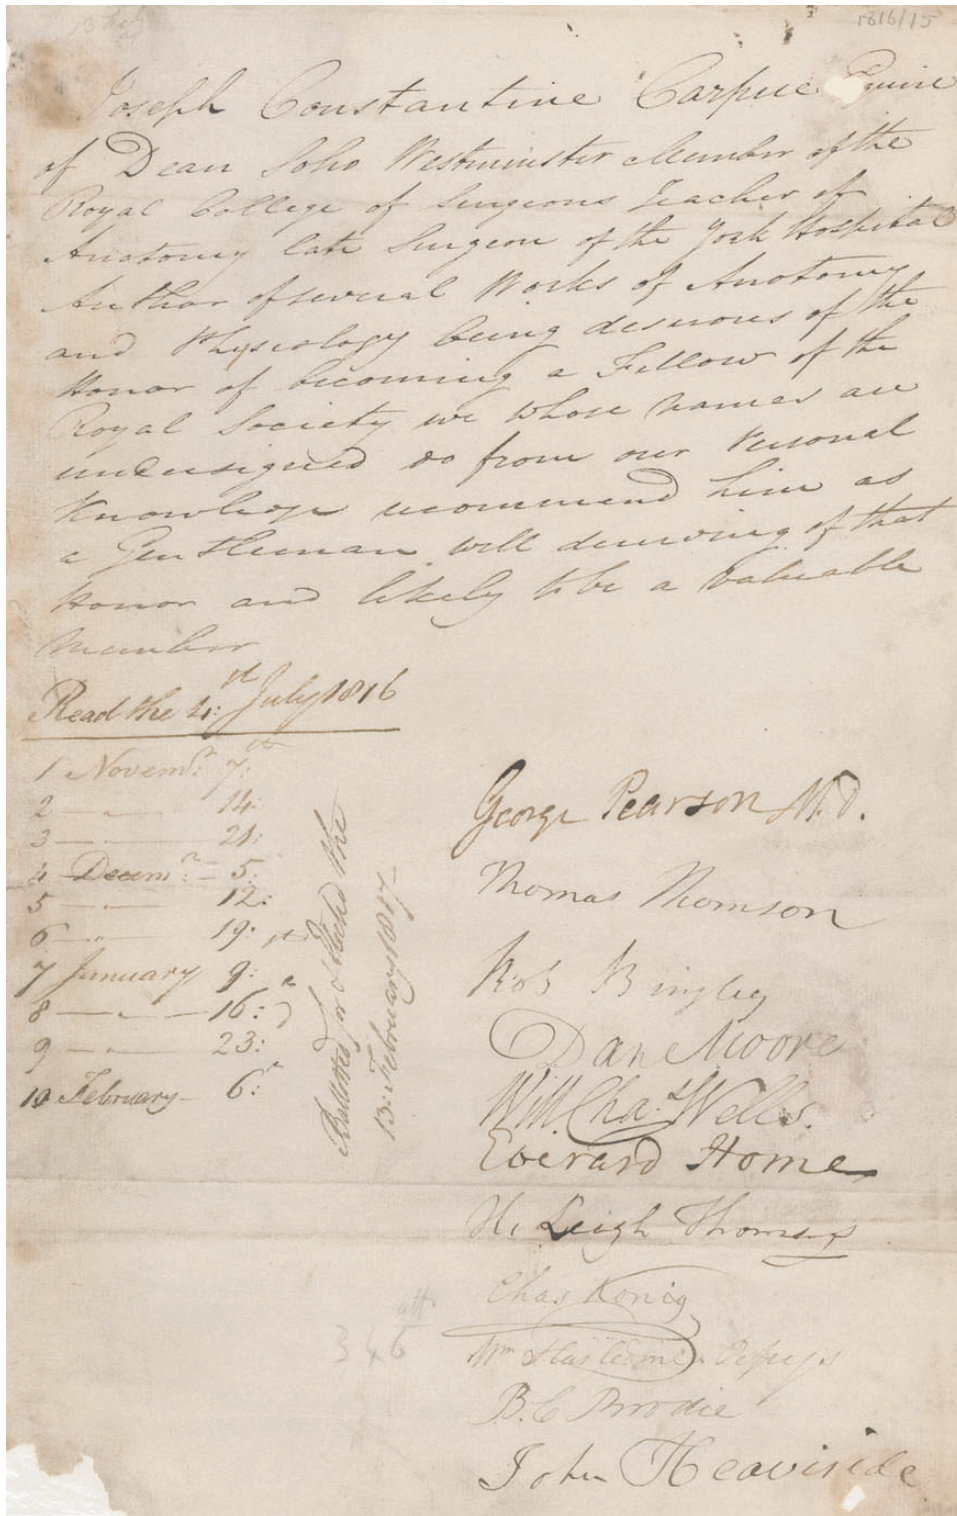 1816/15
Joseph Constantine Carpue Esquire
of Dean Soho Westminster Member of the
Royal College of Surgeons Teacher of
Anatomy late Surgeon of the York Hospital
Author of several Works of Anatomy
and Physiology being desirous of the
Honor of becoming a Fellow of the
Royal Society we whose names are
undersigned do from our Personal
Knowledge recommend him as
a Gentleman well deserving of that
Honor and likely to be a valuable
Member
Read the 4:th July 1816
1 Novemr: 7:th
2 — " — 14:
3 — " — 21:
4 Decemr: — 5:
5 — " — 12:
6 — " — 19:
7 January 9:
8 — " — 16:
9 — " — 23:
10 February — 6:
Ballotted for & Elected the
13: February 1817
George Pearson M.D.
Thomas Thomson
Rob Bingley
Dan Moore
Will. Chas. Wells.
Everard Home
H. Leigh Thomas
Chas Konig
Wm Hasledine Pepys
B. C. Brodie
John Heaviside
346